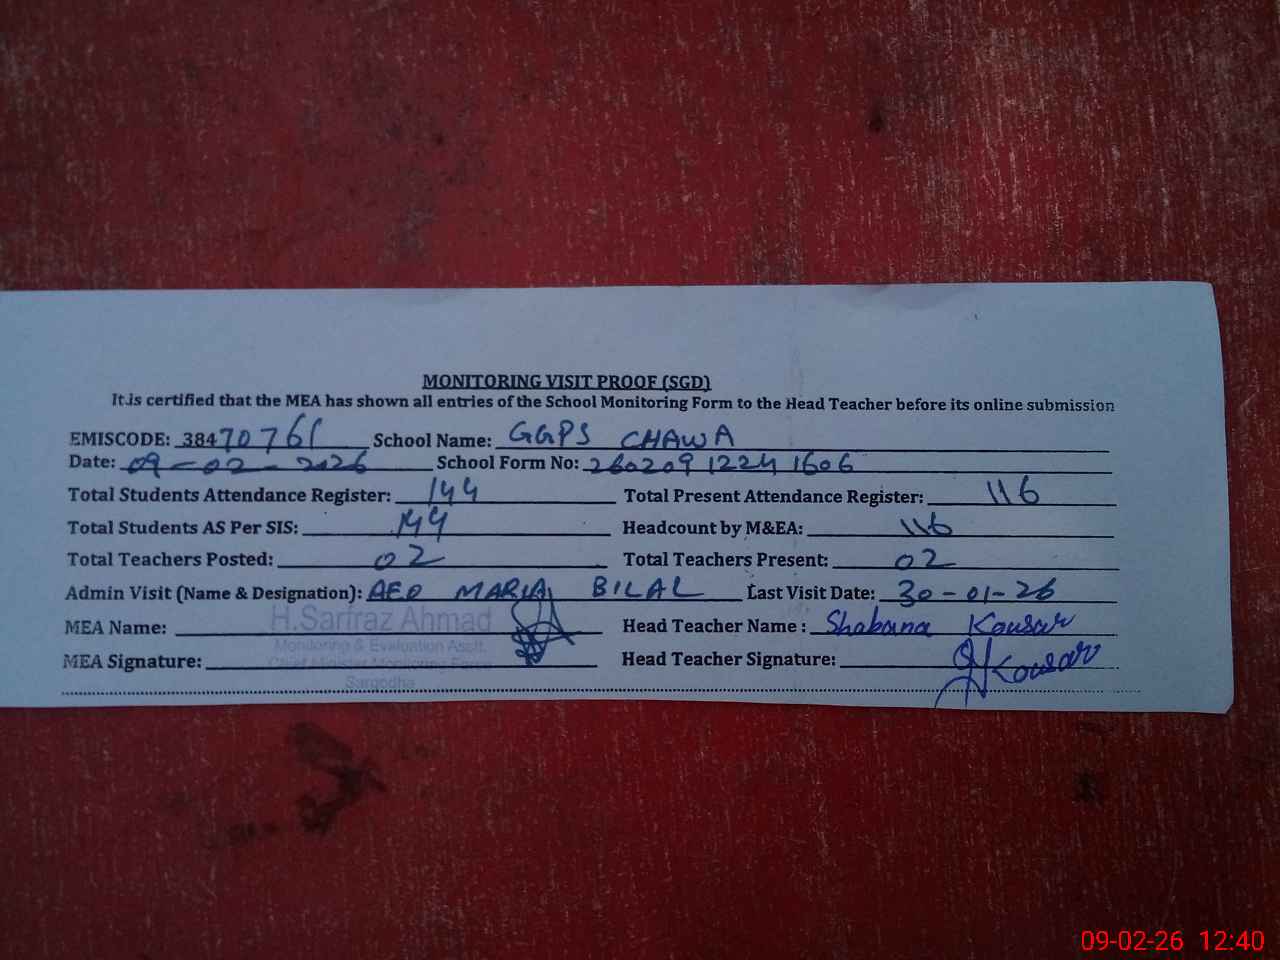 MONITORING VISIT PROOF (SGD)
It is certified that the MEA has shown all entries of the School Monitoring Form to the Head Teacher before its online submission
EMISCODE: 38470761 School Name: GGPS CHAWA
Date: 09-02-2026 School Form No: 260209 1224 1606
Total Students Attendance Register: 144 Total Present Attendance Register: 116
Total Students AS Per SIS: 144 Headcount by M&EA: 116
Total Teachers Posted: 02 Total Teachers Present: 02
Admin Visit (Name & Designation): AEO MARIA BILAL Last Visit Date: 30-01-26
MEA Name: H.Sarfraz Ahmad Head Teacher Name : Shabana Kousar
Monitoring & Evaluation Asstt.
MEA Signature: Chief Minister Monitoring Force Head Teacher Signature: Kousar
Sargodha
09-02-26 12:40